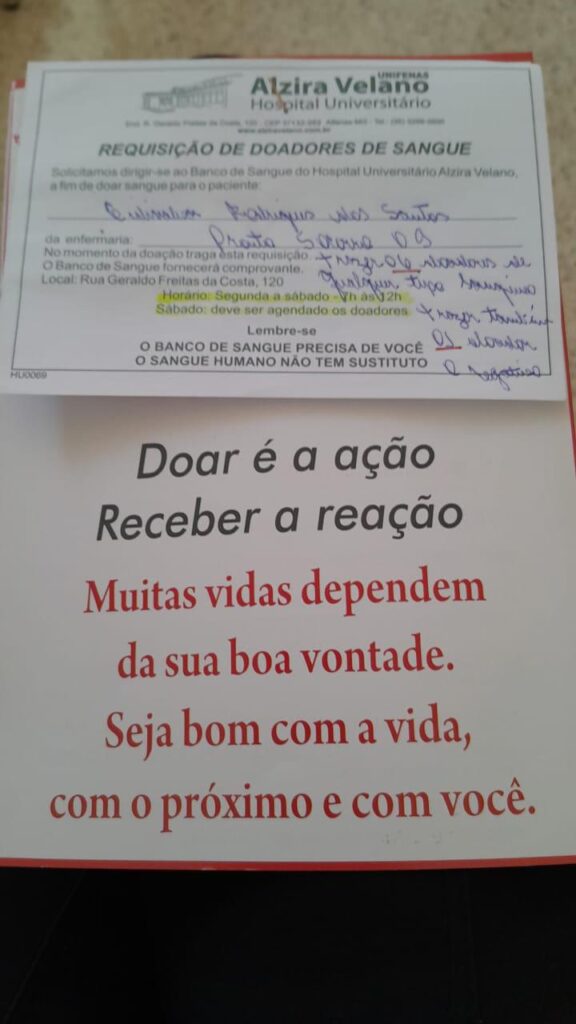 UNIFENAS
Alzira Velano
Hospital Universitário
www.alziravelano.com.br
REQUISIÇÃO DE DOADORES DE SANGUE
Solicitamos dirigir-se ao Banco de Sangue do Hospital Universitário Alzira Velano,
a fim de doar sangue para o paciente:
Rodrigues dos Santos
da enfermaria: Pronto Socorro 09
No momento da doação traga esta requisição.
O Banco de Sangue fornecerá comprovante.
Local: Rua Geraldo Freitas da Costa, 120
Horário: Segunda a sábado - 7h às 12h
Sábado: deve ser agendado os doadores
trazer 06 doadores de
qualquer tipo sanguíneo
trazer também
01 doador
O negativo
Lembre-se
O BANCO DE SANGUE PRECISA DE VOCÊ
O SANGUE HUMANO NÃO TEM SUSTITUTO
HU0069
Doar é a ação
Receber a reação
Muitas vidas dependem
da sua boa vontade.
Seja bom com a vida,
com o próximo e com você.